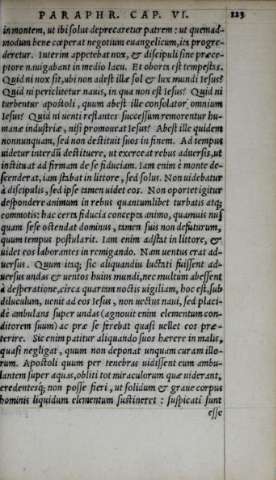 PARAPHR. CAP. VI. 223
in montem, ut ibi solus deprecaretur patrem: ut quemad-
modum bene cœperat negotium euangelicum, ita progre-
deretur. Interim appetebat nox, & discipuli sine præce-
ptore nauigabant in medio lacu. Et oborta est tempestas.
Quid ni nox sit, ubi non adest ille sol & lux mundi Iesus?
Quid ni periclitetur nauis, in qua non est Iesus? Quid ni
turbentur apostoli, quum abest ille consolator omnium
Iesus? Quid ni uenti reflantes successum remorentur hu-
manæ industriæ, nisi promoueat Iesus? Abest ille quidem
nonnunquam, sed non destituit suos in finem. Ad tempus
uidetur interdū destituere, ut exerceat rebus aduersis, ut
instituat ad firmam de se fiduciam. Iam enim è monte de-
scenderat, iam stabat in littore, sed solus. Non uidebatur
à discipulis, sed ipse tamen uidet eos. Non oportet igitur
despondere animum in rebus quantumlibet turbatis atq;
commotis: hac certa fiducia concepta animo, quamuis nusq̄
quam sese ostendat dominus, tamen suis non defuturum,
quum tempus postularit. Iam enim adstat in littore, &
uidet eos laborantes in remigando. Nam uentus erat ad-
uersus. Quum itaq; sic aliquandiu luctati fuissent ad-
uersus undas & uentos huius mundi, nec multum abessent
à desperatione, circa quartam noctis uigiliam, hoc est, sub
diluculum, uenit ad eos Iesus, non uectus naui, sed placi-
dè ambulans super undas (agnouit enim elementum con-
ditorem suum) ac præ se ferebat quasi uellet eos præ-
terire. Sic enim patitur aliquando suos hærere in malis,
quasi negligat, quum non deponat unquam curam illo-
rum. Apostoli quum per tenebras uidissent eum ambu-
lantem super aquas, obliti tot miraculorum quæ uiderant,
credentesq; non posse fieri, ut solidum & graue corpus
hominis liquidum elementum sustineret: suspicati sunt
esse